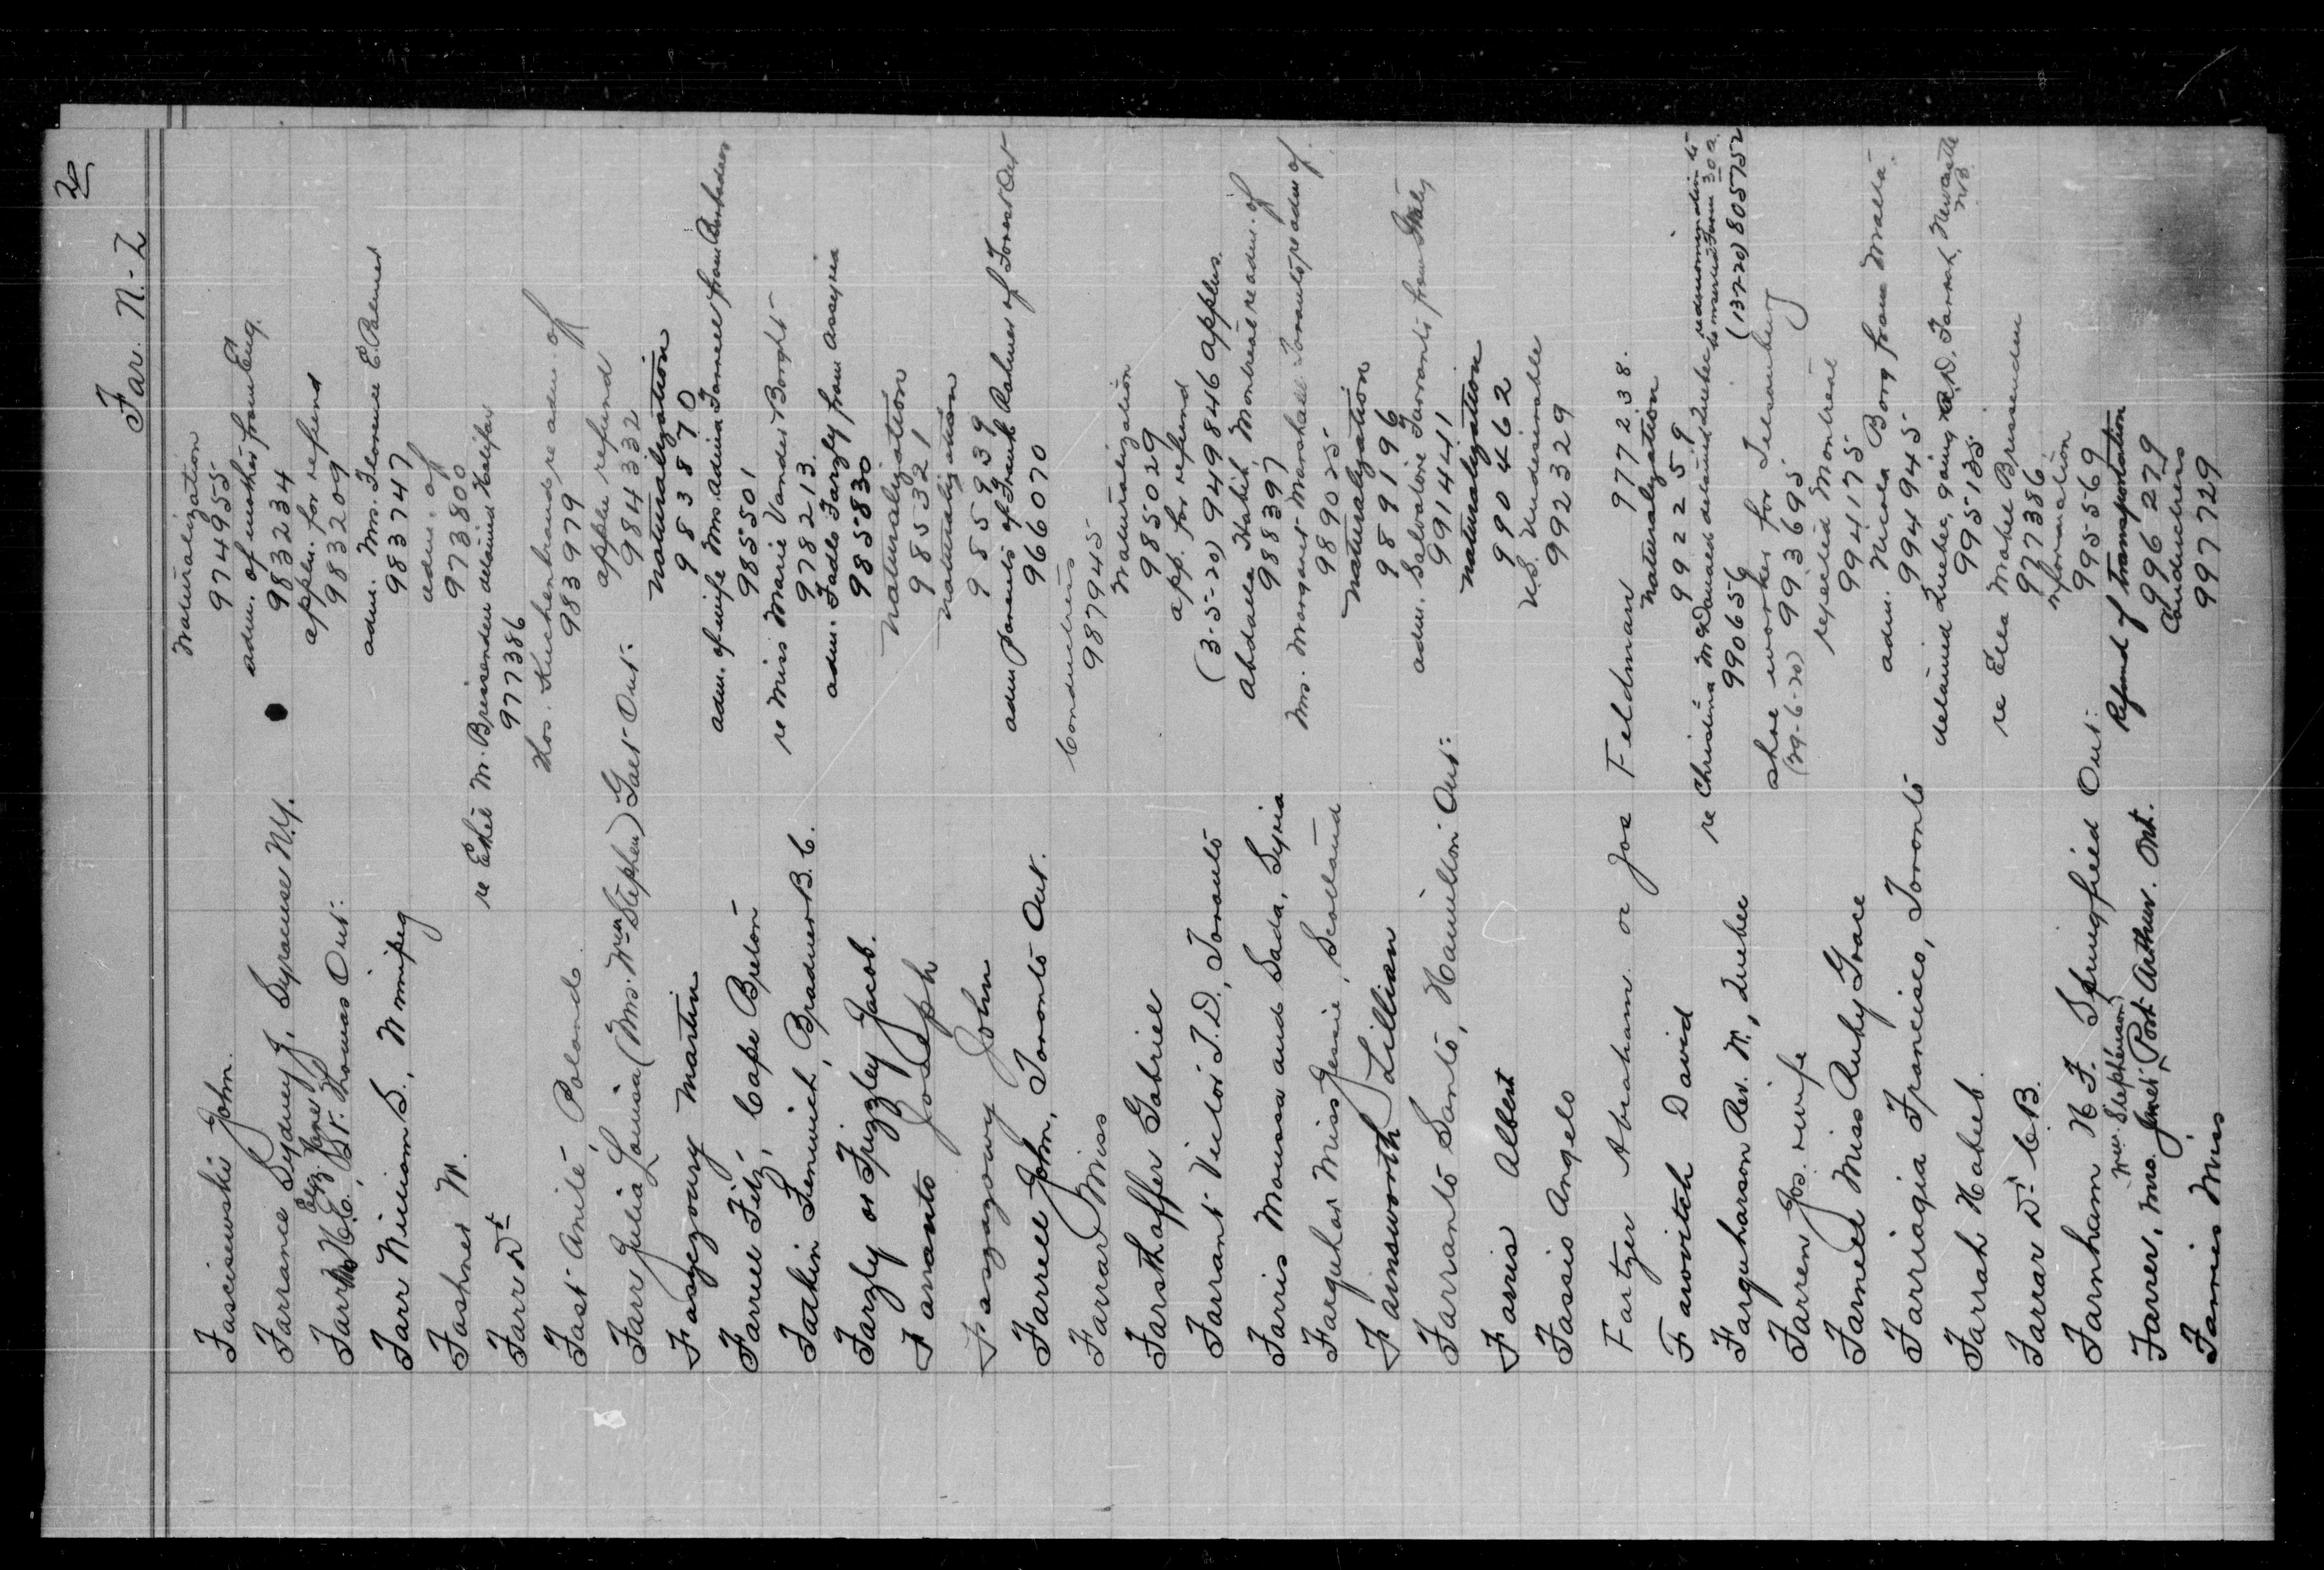 20
Far. N-Z
Fasciszewski John. Naturalization
974955
Farrance Sydney J, Syracuse N.Y. adm. of mother from Eng.
983234
Eliz. Jane
Farr Mrs H.C., St. Thomas Ont. appln. for refund
983209
Farr William S., Winnipeg adm. Mrs. Florence E. Palmer
983747
Fashner W. adm. of
973800
Farr Dr re Ethel M. Brissenden detained Halifax
977386
Fast Anite, Poland. Hos. Kuchenbrand re adm. of
983979
Farr Julia Louisa (Mrs. Wm Stephen) Galt Ont. appln refund
984332
Faszczowy Martin Naturalization
983870
Farrell Fitz, Cape Breton adm. of wife Mrs. Adrina Farrell from Barbadoes
985501
Fatkin Fenwick, Bradner B.C. re Miss Marie Vander Borght
978213
Farzly or Frizzley Jacob. adm. Fadlo Farzly from Assyria
985830
Farranto Joseph Naturalization
985321
Faszazowy John Naturalization
985939
Farrell John, Toronto Ont. adm parents of Frank Rahmer of Forest Ont
966070
Farrar Miss Conductress
987945
Farsthoffer Gabriel Naturalization
985029
Farrant Victor T.D., Toronto app. for refund
(3-5-20) 949846 applns.
Farris Moussa and Sada, Syria Abdalla Habib, Montreal re adm. of
988397
Farquhar Miss Jessie, Scotland Mrs. Margaret Marshall Toronto re adm of.
989025
Farnsworth Lillian Naturalization
989196
Farranto Santo, Hamilton Ont. adm. Salvatore Farranto from Italy
991441
Farris Albert Naturalization
990462
Fassio Angelo U.S. Undesirable
992329
Fartzer Abraham or Joe Feldman 977238.
Farovitch David Naturalization
992259
Farquharson Rev. W., Quebec re Christina McDonald detained Quebec
990656 (13-2-20) 805752
Farren Jos. wife shoe worker for Tillsonburg
(29-6-20) 993695
Farnell Miss Ruby Grace rejected Montreal
994175
Farriagia Francisco, Toronto adm. Nicola Borg from Malta.
994945
Farrah Habeb. detained Quebec, going A.D. Farrah, Newcastle N.B.
995135
Farrar Dr C.B. re Ella Mabel Brissenden
977386
Farnham H F. Springfield Ont. information
995569
nee Stephenson
Farrer, Mrs. Janet, Port Arthur. Ont. Refund of transportation
996279
Farries Miss Conductress
997729